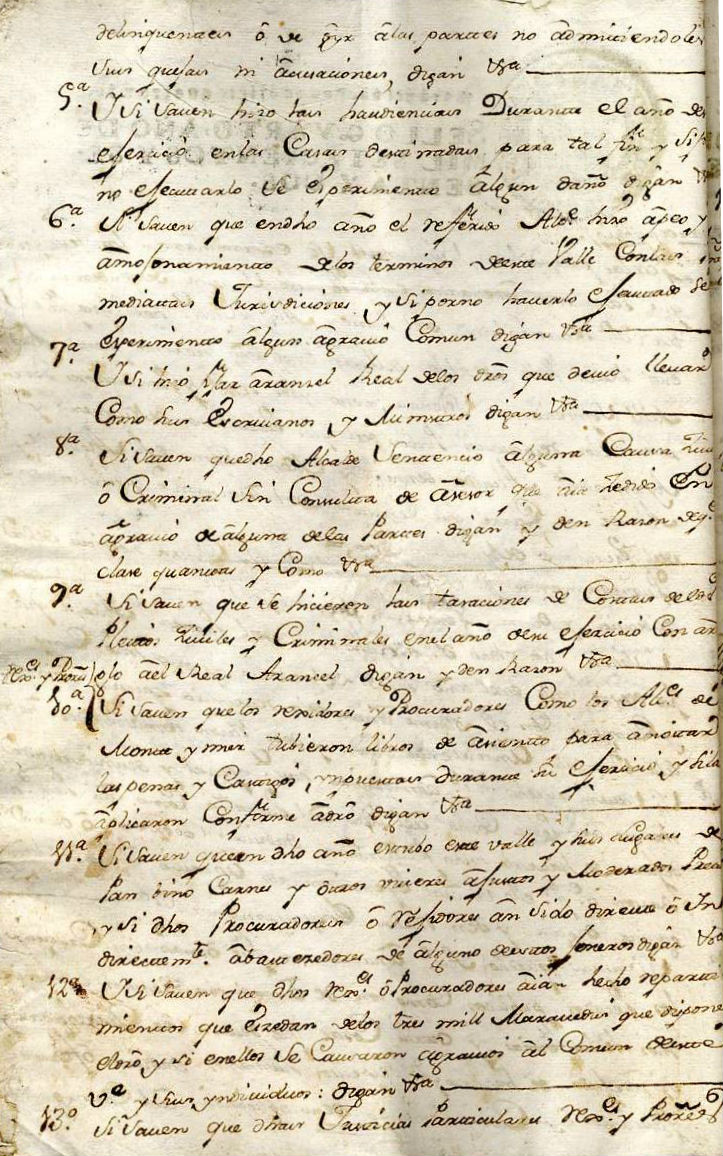 delinquencias ô de oyr â las partes no admiciendoles
sus quejas ni âcusaciones digan Vsª
5.ª Y Si saven hizo las haudiencias Durante el año de su
ejercicio en las Casas destinadas para tal fin y Si por
no ejecutarlo Se esperimento âlgun daño digan Vsª
6.ª Si saven que en dho año el referido Alcde hizo âpeo y
âmojonamiento de los terminos de este Valle Con las in
mediattas Jurisdiciones y si por no haverlo ejecutado Se
esperimento âlgun âgravio Comun digan Vsª
7.ª Y Si hizo fijar âranzel Real de los dros que devio llevar
Como sus Escrivanos y Ministros digan Vsª
8.ª Si saven que dho Alcalde Sentencio âlguna Causa Zivil
ô Criminal Sin Consulta de âsesor que âia Zedido En
âgravio de âlguna de las Partes digan y den Razon de q.e
clase quantas y Como Vsª
9.ª Si saven que Se hicieron las tasaciones de Costas de los
Pleitos Ziviles y Criminales en el año de su ejercicio Con arre
glo âl Real Aranzel digan y den Razon Vsª
Rexres y Procurs
10.ª Si saven que los rexidores y Procuradores Como los Alces de
Monte y mer tubieron libros de âsiento para ânottar
las penas y Castigos, ynpuestas durante su ejercicio y si la
âplicaron Conforme âdro digan Vsª
11.ª Si saven que en dho año estubo este valle y sus lugares de
Pan bino Carnes y otros viveres âjustos y Moderados Precio
y si dhos Procuradores ô Rejidores ân Sido directe ô In
directemte. âbastezedores de âlguno de estos Jeneros digan Vsª
12.ª Y Si saven que dhos Rexres ô Procuradores âian hecho reparti
mientos que Ezedan de los tres mill Maravedis que dispone
el dro y si en ellos Se Causaron âgravios âl Comun de este
V.e y sus yndividuos: digan Vsª
13.º Si saven que dhas Justicias Particulares Rexres y Procres